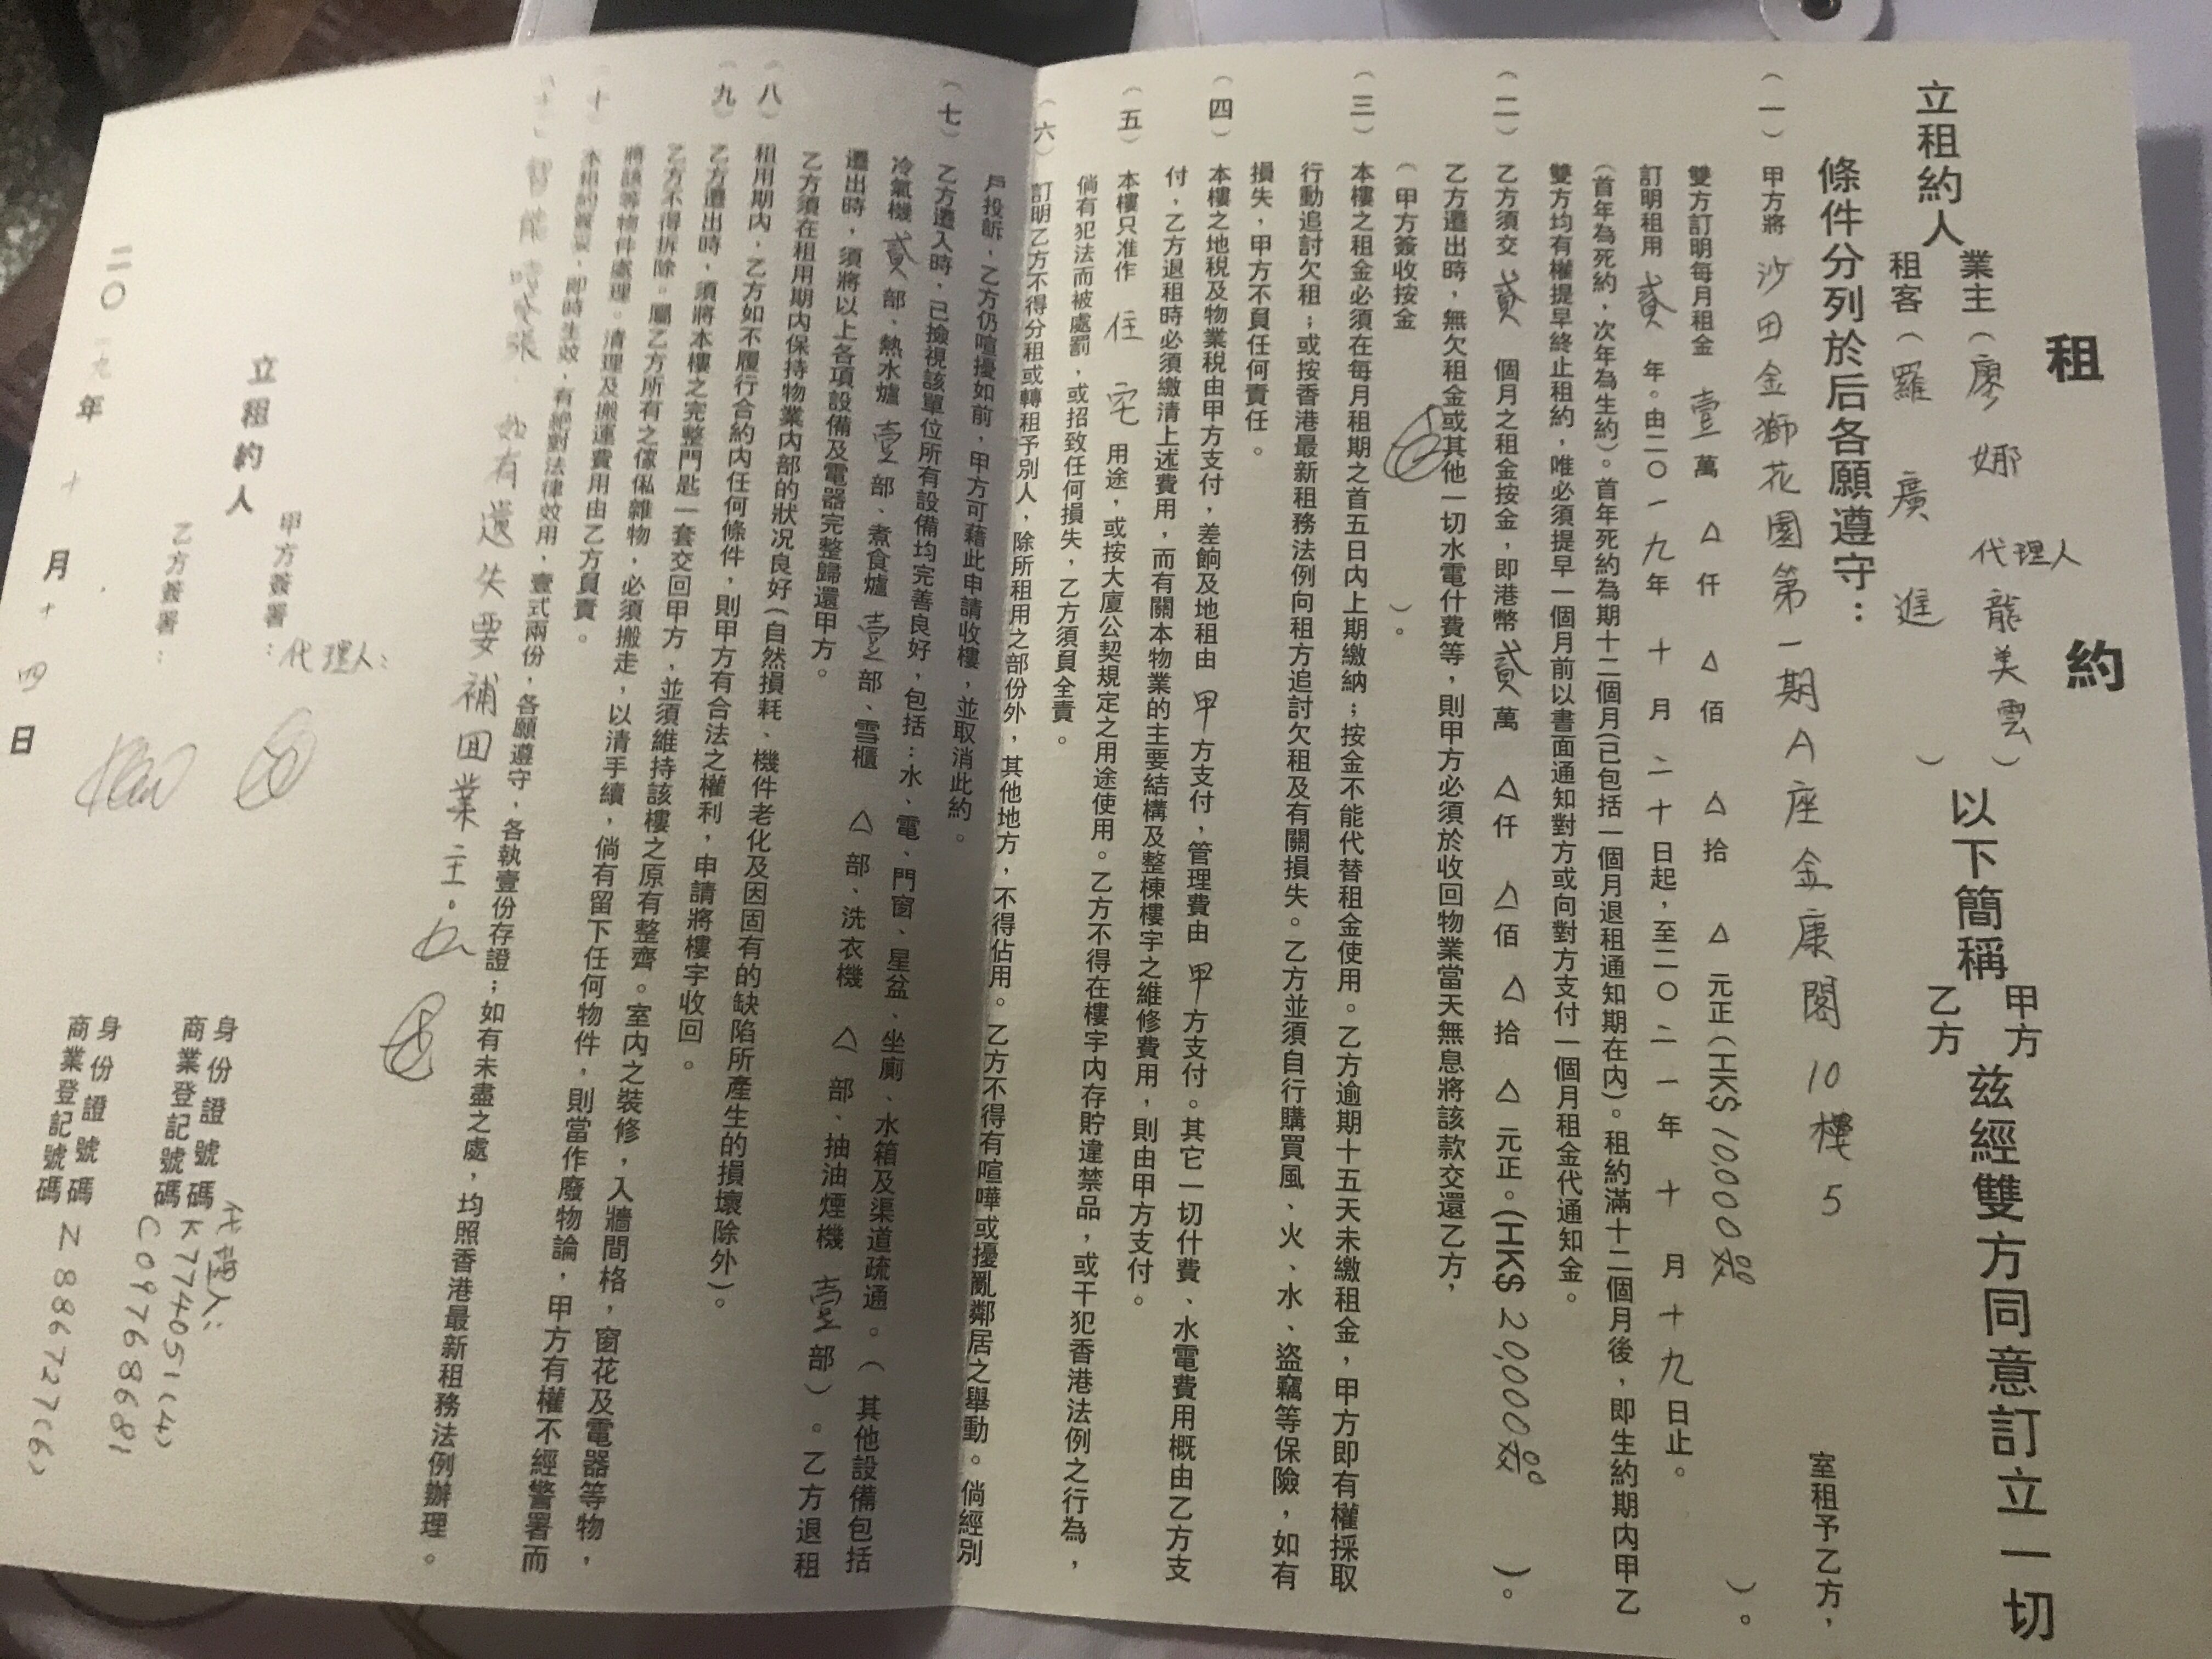 租約
立租約人 業主（廖娜 代理人 龍美雲） 以下簡稱 甲方 茲經雙方同意訂立一切
租客（羅廣進） 乙方
條件分列於后各願遵守：
（一）甲方將 沙田金獅花園第一期A座金康閣10樓5 室租予乙方，
雙方訂明每月租金 壹萬 △仟 △佰 △拾 △元正（HK$ 10,000 ）。
訂明租用 貳 年。由二〇一九年 十 月 二十 日起，至二〇二一年 十 月 十九 日止。
（首年為死約，次年為生約）。首年死約為期十二個月（已包括一個月退租通知期在內）。租約滿十二個月後，即生約期內甲乙
雙方均有權提早終止租約，唯必須提早一個月前以書面通知對方或向對方支付一個月租金代通知金。
（二）乙方須交 貳 個月之租金按金，即港幣 貳 萬 △仟 △佰 △拾 △元正。（HK$ 20,000 ）。
乙方遷出時，無欠租金或其他一切水電什費等，則甲方必須於收回物業當天無息將該款交還乙方，
（甲方簽收按金 ）。
（三）本樓之租金必須在每月租期之首五日內上期繳納；按金不能代替租金使用。乙方逾期十五天未繳租金，甲方即有權採取
行動追討欠租；或按香港最新租務法例向租方追討欠租及有關損失。乙方並須自行購買風、火、水、盜竊等保險，如有
損失，甲方不負任何責任。
（四）本樓之地稅及物業稅由甲方支付，差餉及地租由 甲 方支付，管理費由 甲 方支付。其它一切什費、水電費用概由乙方支
付，乙方退租時必須繳清上述費用，而有關本物業的主要結構及整棟樓宇之維修費用，則由甲方支付。
（五）本樓只准作 住宅 用途，或按大廈公契規定之用途使用。乙方不得在樓宇內存貯違禁品，或干犯香港法例之行為，
倘有犯法而被處罰，或招致任何損失，乙方須負全責。
（六）訂明乙方不得分租或轉租予別人，除所租用之部份外，其他地方，不得佔用。乙方不得有喧嘩或擾亂鄰居之舉動。倘經別
戶投訴，乙方仍喧擾如前，甲方可藉此申請收樓，並取消此約。
（七）乙方遷入時，已撿視該單位所有設備均完善良好，包括：水、電、門窗、星盆、坐廁、水箱及渠道疏通。（其他設備包括
冷氣機 貳 部、熱水爐 壹 部、煮食爐 壹 部、雪櫃 △ 部、洗衣機 △ 部、抽油煙機 壹 部）。乙方退租
遷出時，須將以上各項設備及電器完整歸還甲方。
乙方須在租用期內保持物業內部的狀況良好（自然損耗、機件老化及因固有的缺陷所產生的損壞除外）。
（八）租用期內，乙方如不履行合約內任何條件，則甲方有合法之權利，申請將樓宇收回。
（九）乙方遷出時，須將本樓之完整門匙一套交回甲方，並須維持該樓之原有整齊。室內之裝修，入牆間格，窗花及電器等物，
乙方不得拆除。屬乙方所有之傢俬雜物，必須搬走，以清手續，倘有留下任何物件，則當作廢物論，甲方有權不經警署而
將該等物件處理。清理及搬運費用由乙方負責。
（十）本租約簽妥，即時生效，有絕對法律效用，壹式兩份，各願遵守，各執壹份存證；如有未盡之處，均照香港最新租務法例辦理。
智能 張，如有遺失要補回業主。
立租約人
甲方簽署：代理人：
身份證號碼 代理人：K774051(4)
商業登記號碼 C09768681
乙方簽署：
身份證號碼 Z886727(6)
商業登記號碼
二〇一九年 十 月 十四 日